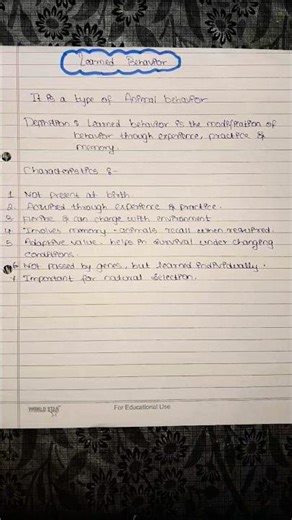 Learned Behavior
It is a type of Animal behavior
Definition : Learned behavior is the modification of
behavior through experience, practice &
memory.
Characteristics :-
1 Not present at birth.
2. Acquired through experience & practice.
3 & can change with environment
4 Involves memory - animals recall when required.
5 Adaptive value - helps in survival under changing
conditions.
6 Not passed by genes, but learned individually.
7 Important for natural selection.
WORLD STAR
For Educational Use